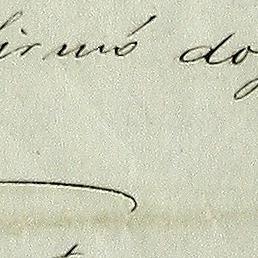 firmó doy